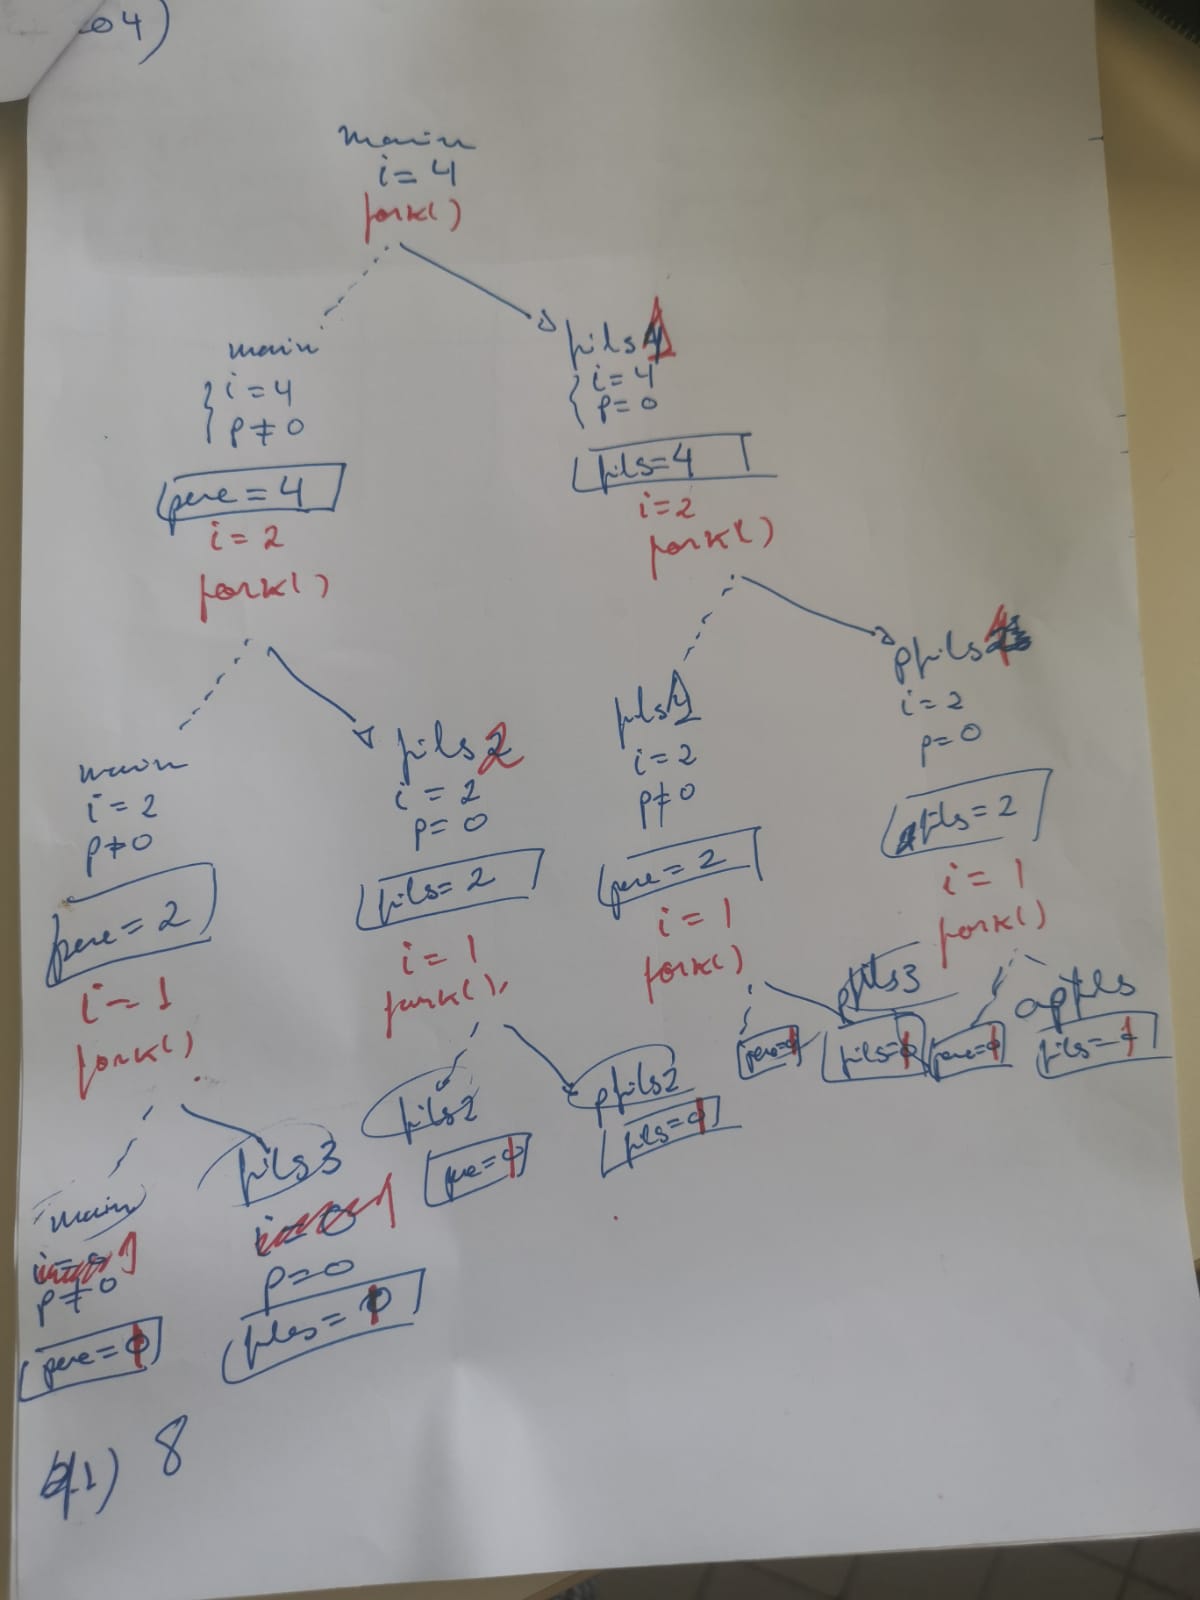 04)
main
i = 4
fork()
main
i = 4
p ≠ 0
pere = 4
i = 2
fork()
fils 1
i = 4
p = 0
fils = 4
i = 2
fork()
main
i = 2
p ≠ 0
pere = 2
i = 1
fork()
fils 2
i = 2
p = 0
fils = 2
i = 1
fork()
fils 1
i = 2
p ≠ 0
pere = 2
i = 1
fork()
pfils
i = 2
p = 0
fils = 2
i = 1
fork()
main
p ≠ 0
pere = 1
fils3
p = 0
fils = 1
fils2
pere = 1
pfils2
fils = 1
pere = 1
pfils3
fils = 1
pere = 1
apfils
fils = 1
1) 8